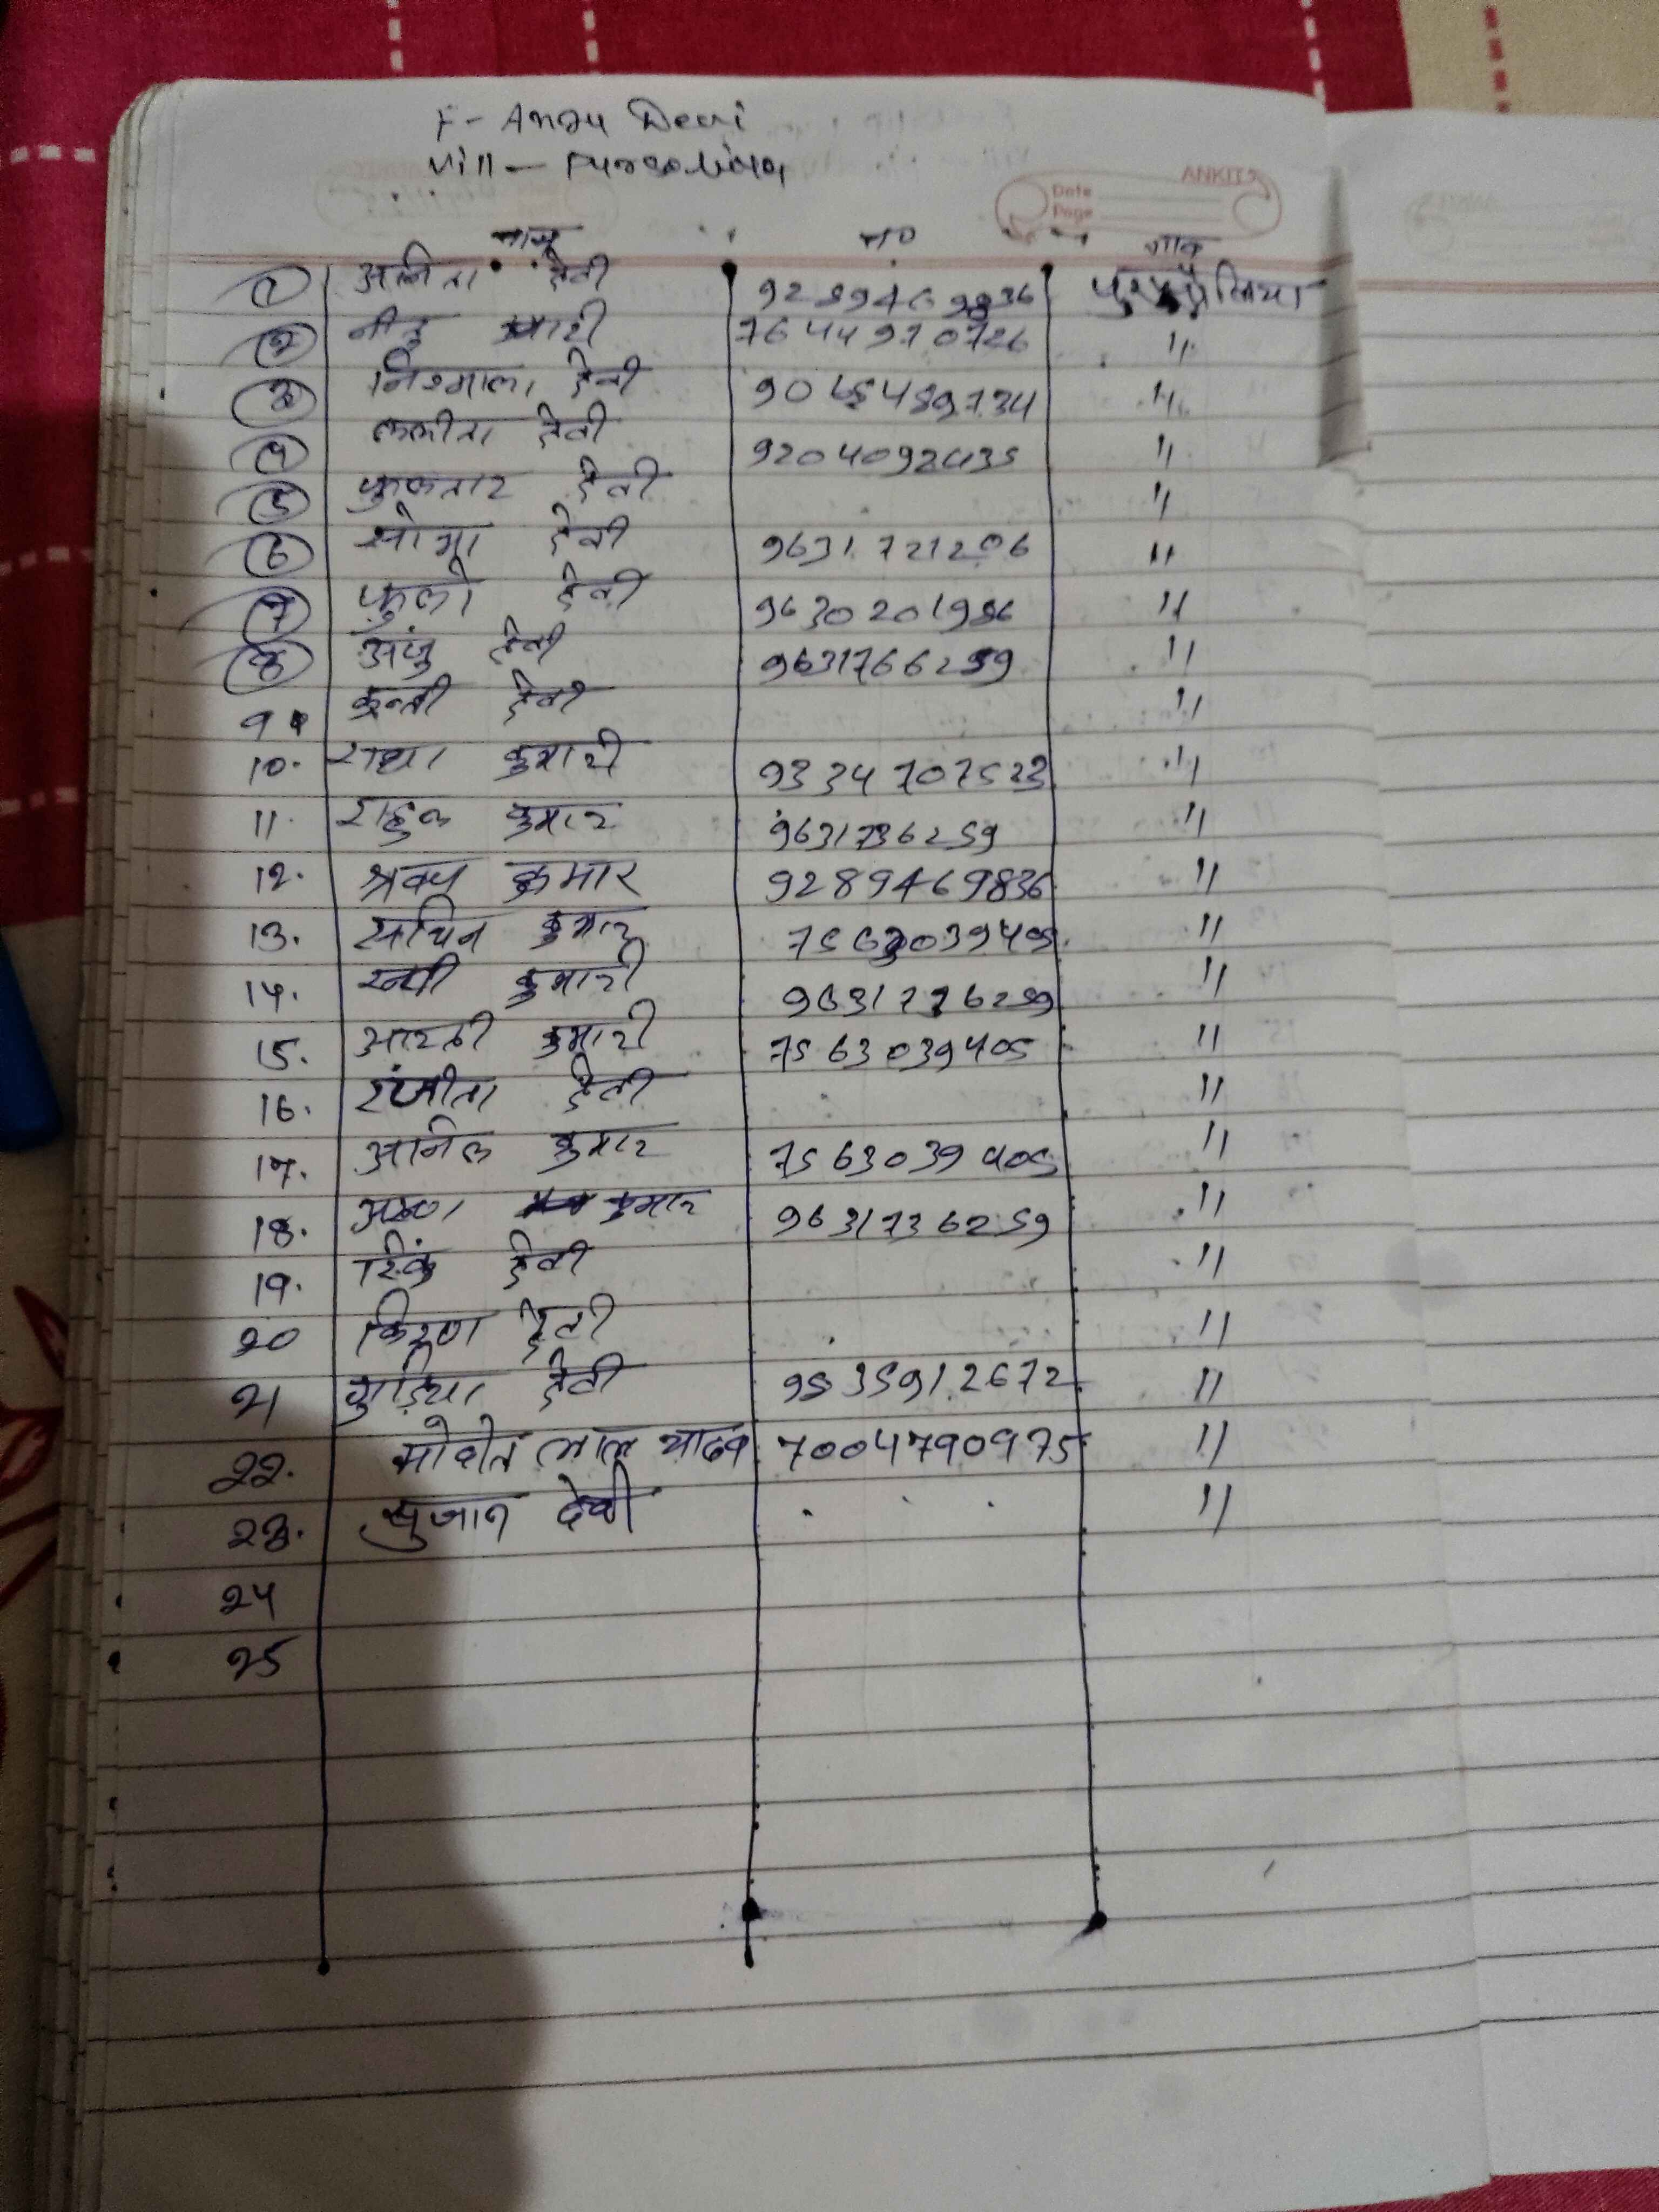 F- Anju Devi
Vill-
ANKIT
Date
Page
नाम no गाव
1 अनिता देवी 9289469836
2 नीतु कुमारी 7644970726 "
3 निरमाला देवी 90 489734 "
4 ललीता देवी 9204092435 "
5 फुलतार देवी "
6 सोमा देवी 9631721206 "
7 फुलो देवी 9630201986 "
8 अंजु देवी 9631766259 "
9 कुन्ती देवी "
10. राधा कुमारी 9334707523 "
11. राहुल कुमार 9631736259 "
12. श्रवण कुमार 9289469836 "
13. सचिन कुमार 7563039405 "
14. कुमारी 9631736259 "
15. आरती कुमारी 7563039405 "
16. रंजीता देवी "
17. अनिल कुमार 7563039405 "
18. कुमार 9631736259 "
19. रिंकु देवी "
20 किरण देवी "
21 गुड़िया देवी 9535912672 "
22. लाल यादव 7004790975 "
23. सुजान देवी "
24
25